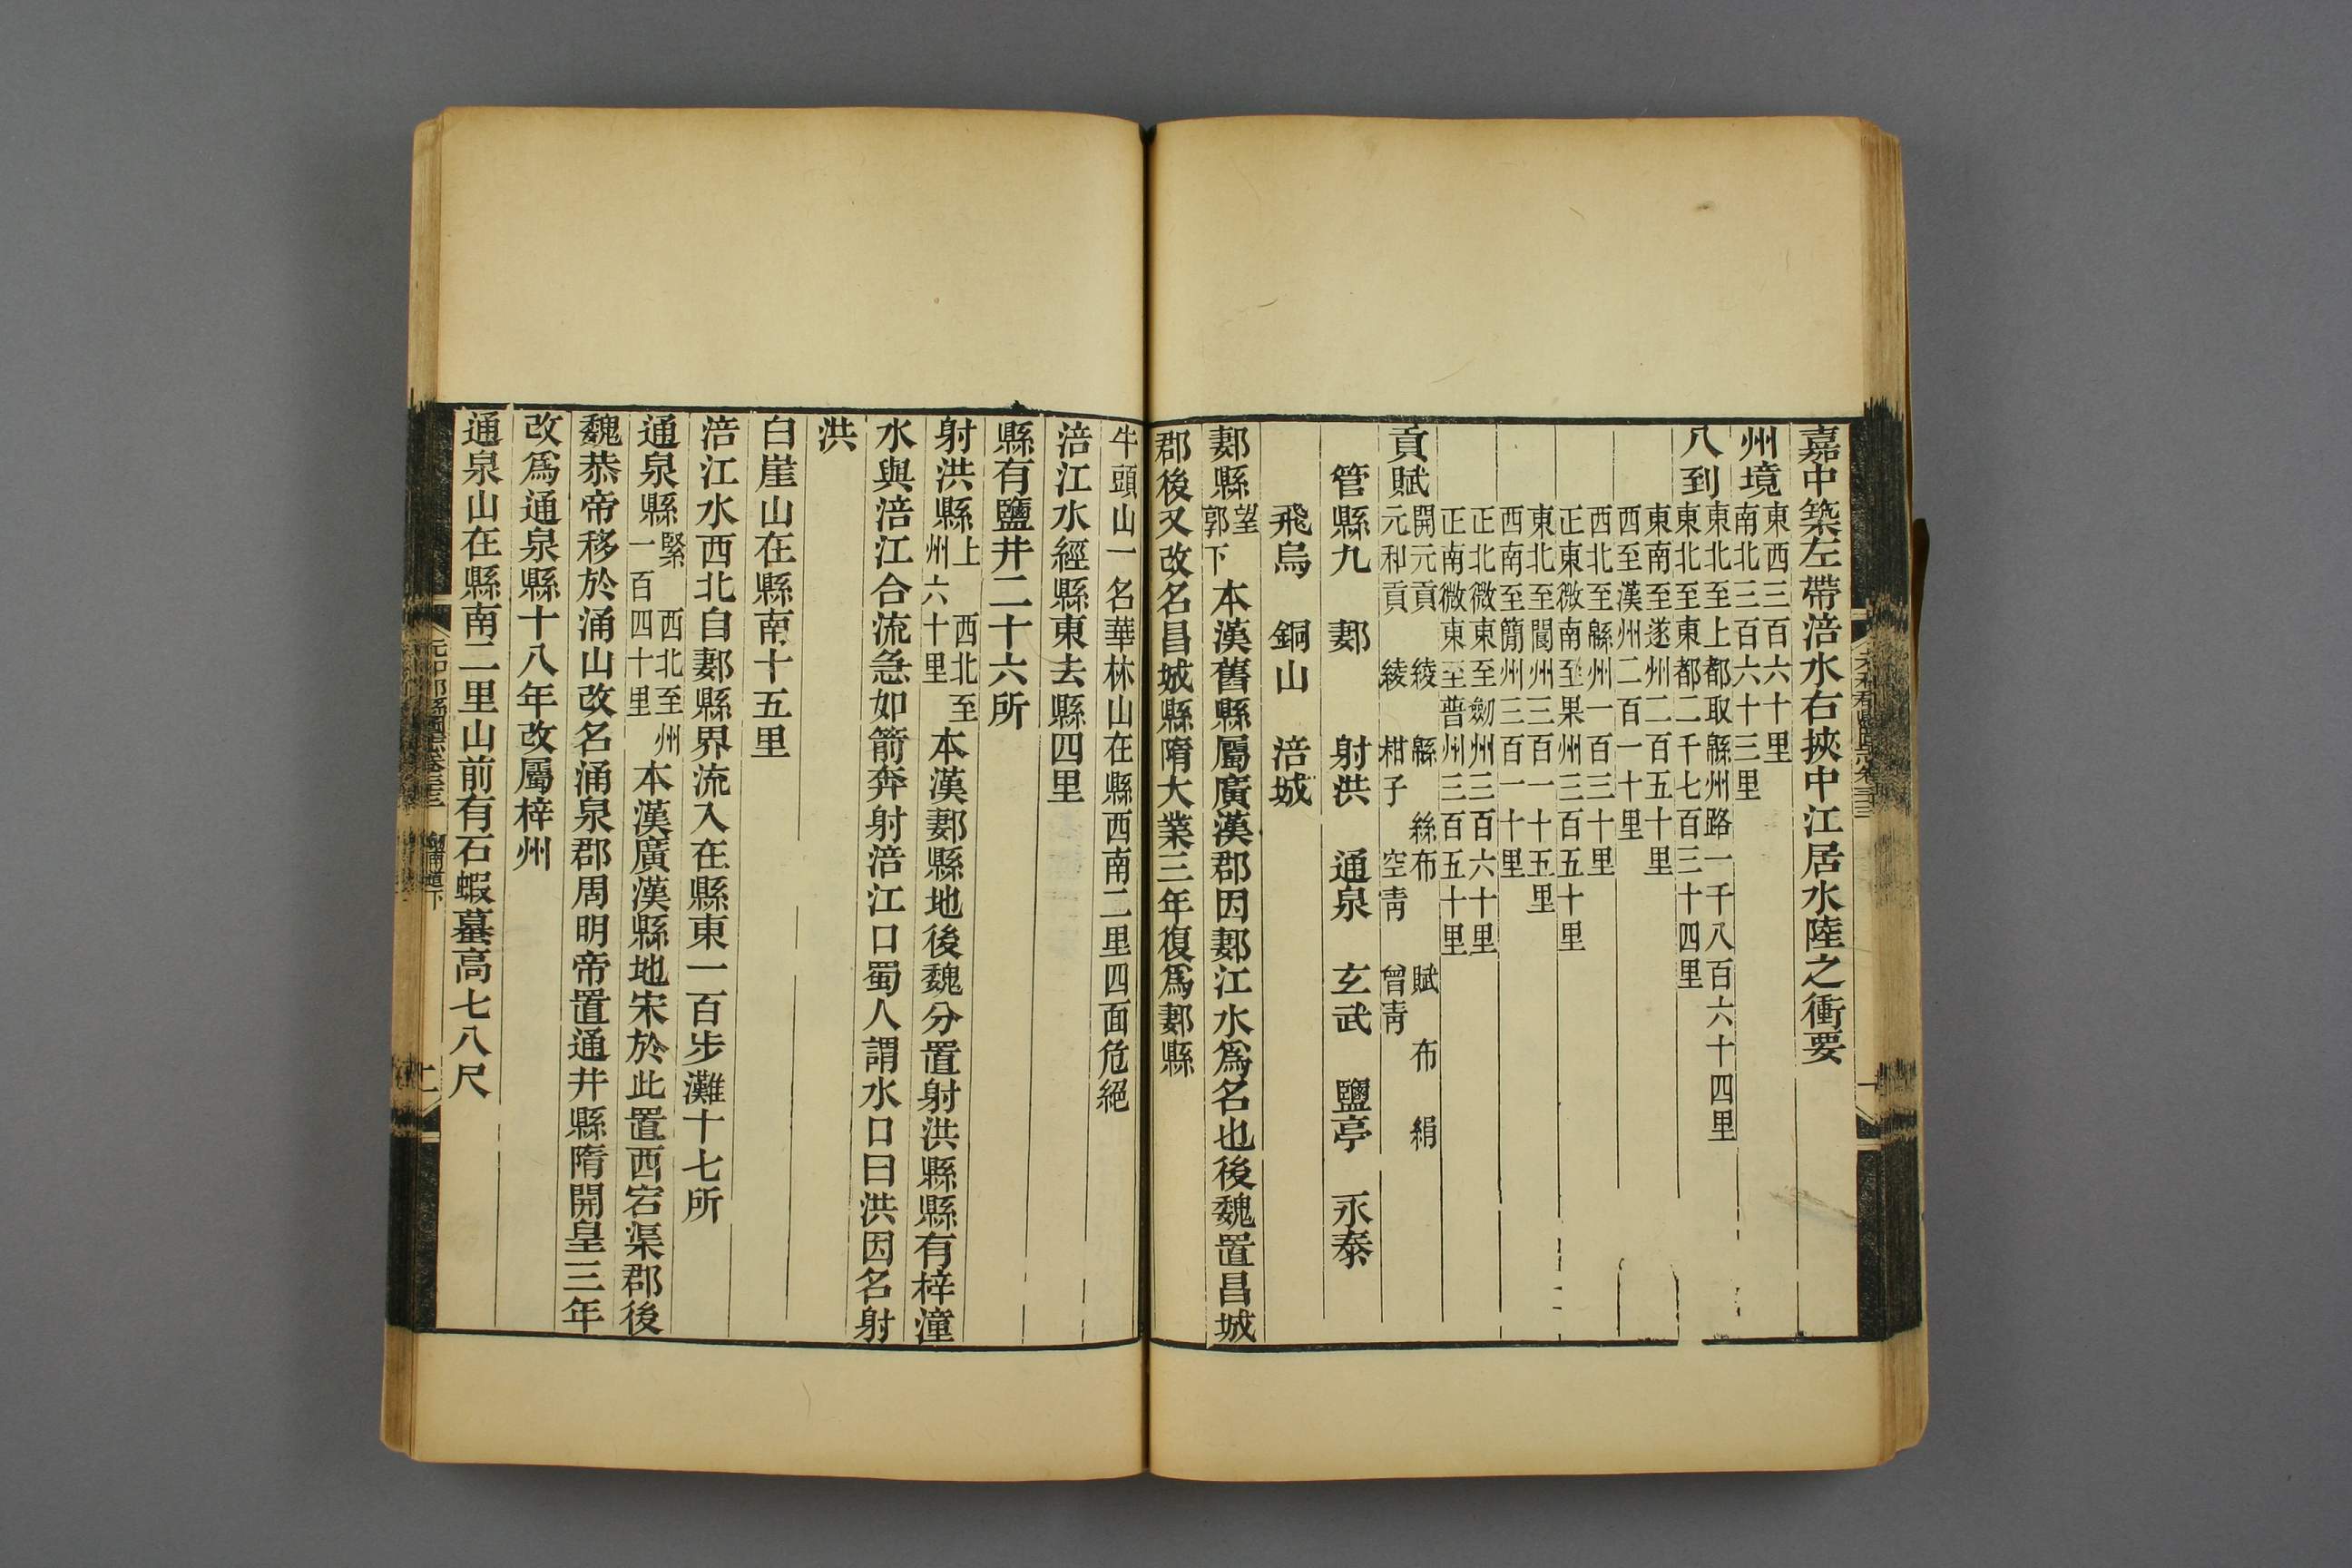 嘉中築左帶涪水右挾中江居水陸之衝要
州境東西三百六十里
南北三百六十三里
八到東北至上都取緜州路一千八百六十四里
東北至東都二千七百三十四里
東南至遂州二百五十里
西至漢州二百一十里
西北至緜州一百三十里
正東微南至果州三百五十里
東北至閬州三百一十五里
西南至簡州三百一十里
正北微東至劒州三百六十里
正南微東至普州三百五十里
貢賦開元貢 綾 緜 絲布 賦 布 絹
元和貢 綾 柑子 空青 曾青
管縣九 郪 射洪 通泉 玄武 鹽亭 永泰
飛烏 銅山 涪城
郪縣望
郭下
本漢舊縣屬廣漢郡因郪江水爲名也後魏置昌城
郡後又改名昌城縣隋大業三年復爲郪縣
牛頭山一名華林山在縣西南二里四面危絕
涪江水經縣東去縣四里
縣有鹽井二十六所
射洪縣上 西北至
州六十里
本漢郪縣地後魏分置射洪縣縣有梓潼
水與涪江合流急如箭奔射涪江口蜀人謂水口曰洪因名射
洪
白崖山在縣南十五里
涪江水西北自郪縣界流入在縣東一百步灘十七所
通泉縣緊 西北至州
一百四十里
本漢廣漢縣地宋於此置西宕渠郡後
魏恭帝移於涌山改名涌泉郡周明帝置通井縣隋開皇三年
改爲通泉縣十八年改屬梓州
通泉山在縣南二里山前有石蝦蟇高七八尺